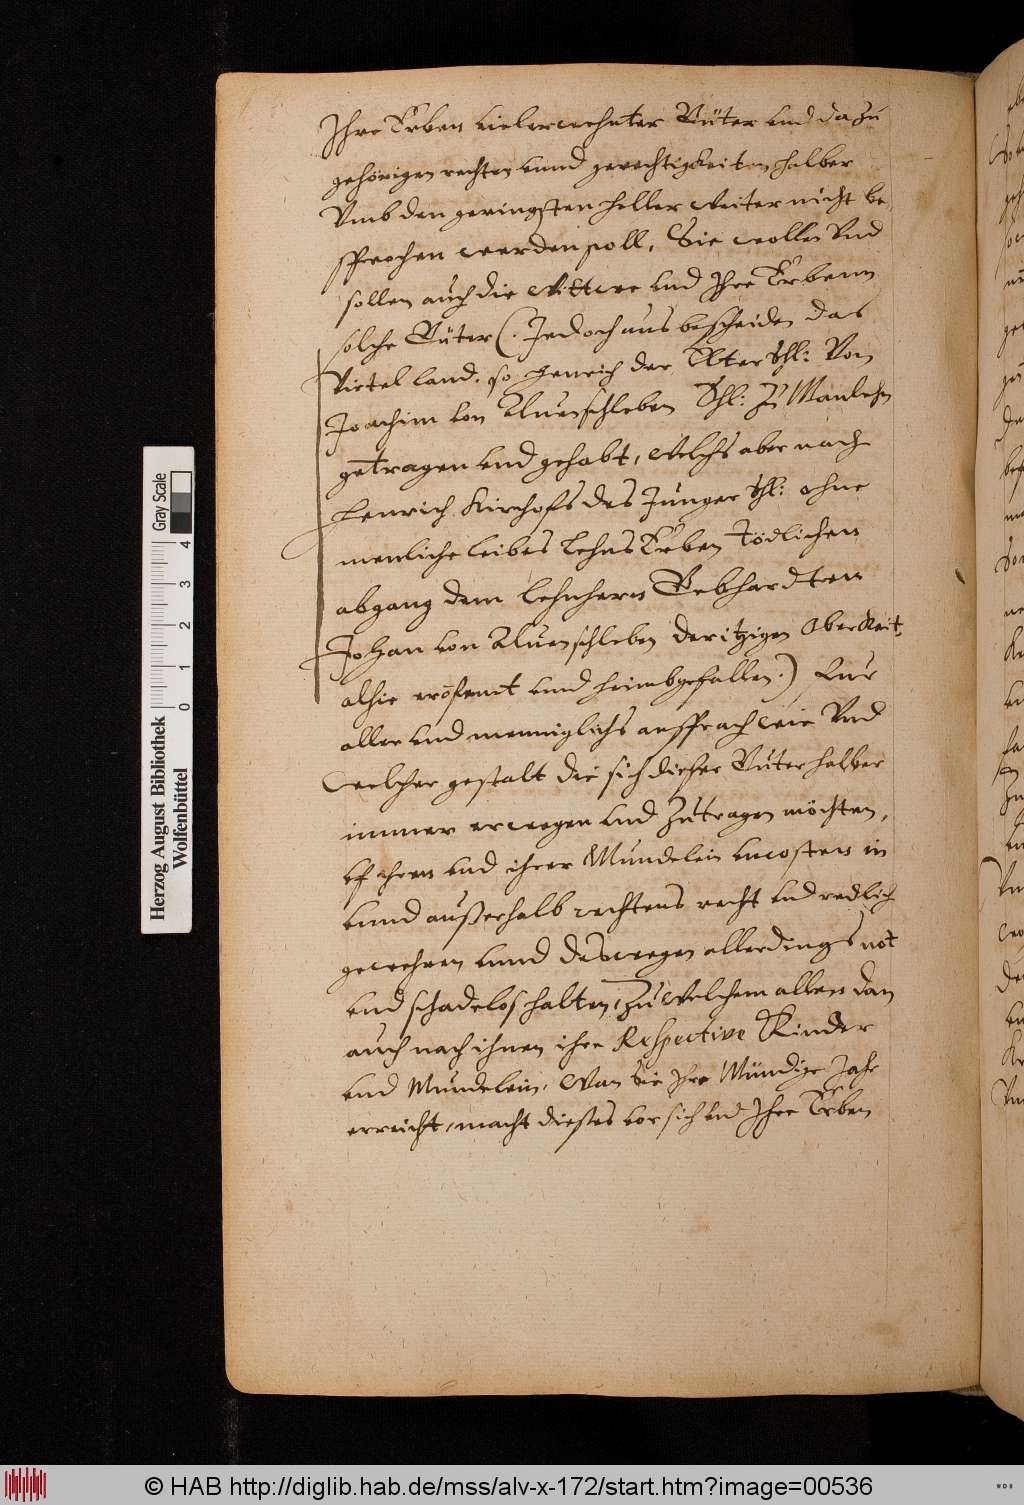 Ihre Erben vielerwehnter Güter vnd dazu
gehörigen rechten vnnd gerechtigkeiten halber
Vmb den geringsten heller weiter nicht be,
sprochen werden soll, Sie wollen Vnd
sollen auch die wittwe vnd Ihre Erbenn
solche Güter (. Jedoch aus bescheiden das
Viertel land, so Henrich der Elter Shl: Von
Joachim von Aluenschleben Shl: zu Manlehn
getragen vnd gehabt, welchs aber nach
Henrich Kirchofs des Junger Shl: ohne
menliche leibes Lehns Erben Tödlichen
abgang dem Lehnhern Gebhardten
Johan von Aluenschleben der itzigen Oberkeit
alhie eröfnet vnnd heimbgefallen.) Fur
aller vnd menniglichs ansprach wie Vnd
welcher gestalt die sich dieser Güter halber
immer erwegen vnd zutragen möchten,
vf ihren vnd ihrer Mundelein vncosten in
vnnd außerhalb rechtens recht vnd redlich
gewehren vnnd deswegen allerdings not
vnd schadelos halten, Zu welchem allen dan
auch nach ihnen ihre Respective Kinder
vnd Mundelein, Wan Sie Ihre Mündige Jahr
erreicht, macht dieses vor sich vnd Ihre Erben
Herzog August Bibliothek
Wolfenbüttel
0 1 2 3 4
Gray Scale
© HAB http://diglib.hab.de/mss/alv-x-172/start.htm?image=00536